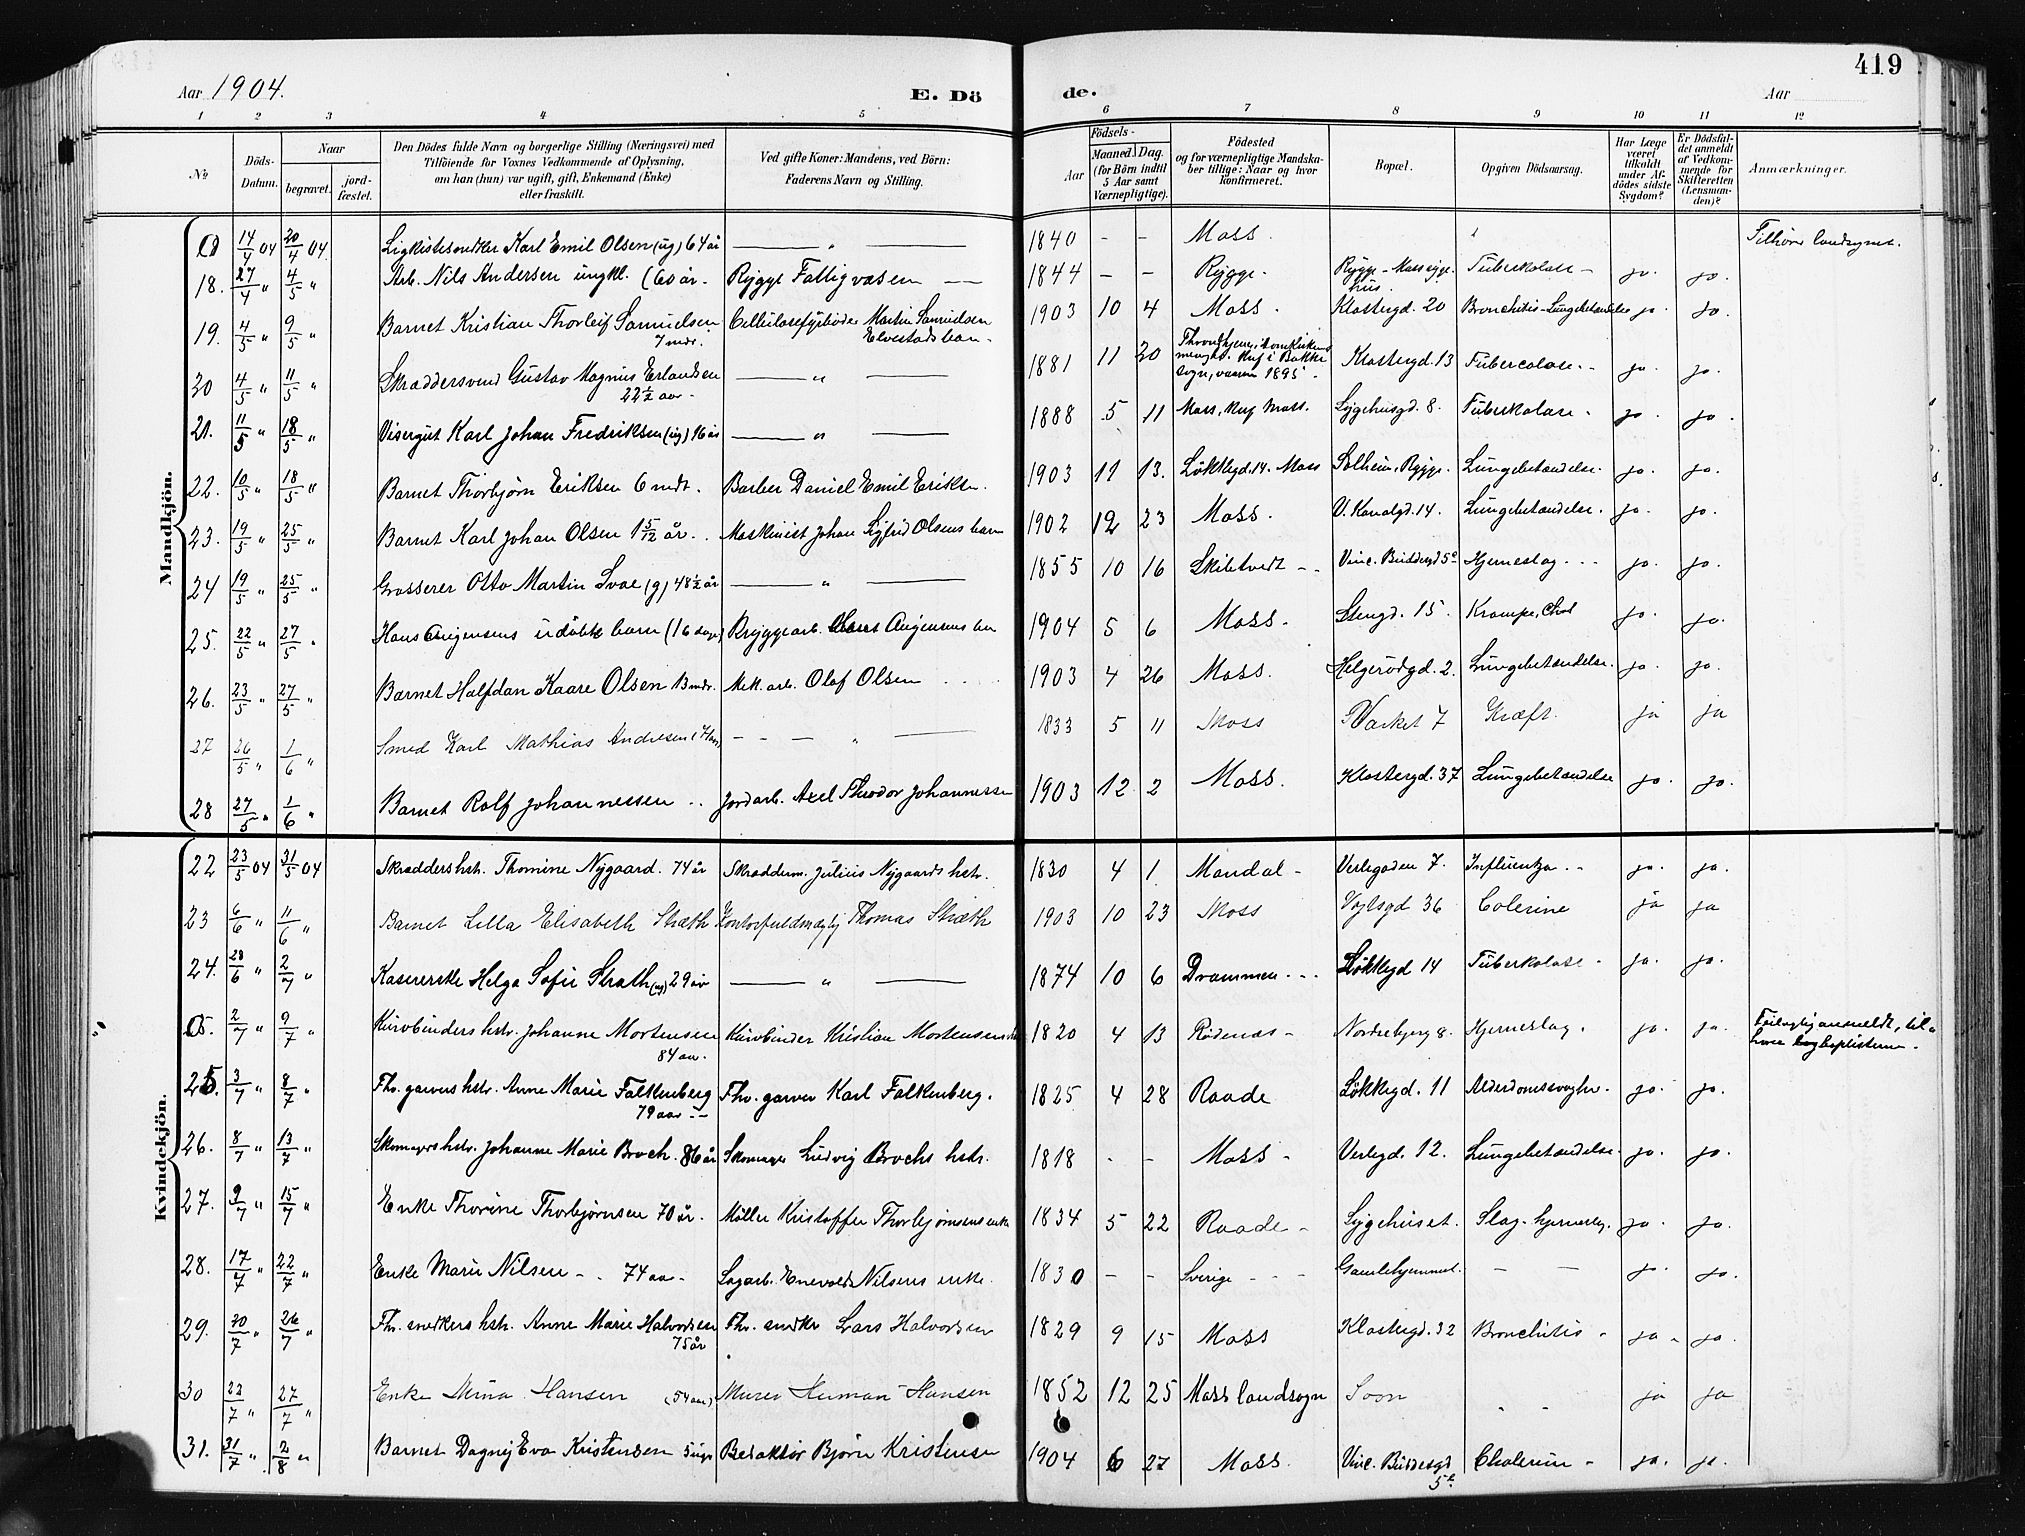 419
Aar 1904.
E. Dö
de.
Aar
1 2 3 4 5 6 7 8 9 10 11 12
No
Döds-Datum.
Naar
begravet.
jord-fæstet.
Den Dödes fulde Navn og borgerlige Stilling (Næringsvei) med
Tilföiende for Voxnes Vedkommende af Oplysning,
om han (hun) var ugift, gift, Enkemand (Enke)
eller fraskilt.
Ved gifte Koner: Mandens, ved Börn:
Faderens Navn og Stilling.
Födsels-
Aar
Maaned. Dag.
(for Börn indtil
5 Aar samt
Værnepligtige).
Födested
og for værnepligtige Mandska-
ber tillige: Naar og hvor
konfirmeret.
Bopæl.
Opgiven Dödsaarsag.
Har Læge
været
tilkaldt
under Af-
dödes sidste
Sygdom?
Er Dödsfal-
det anmeldt
af Vedkom-
mende for
Skifteretten
(Lensman-
den)?
Anmærkninger.
Mandkjön.
0 14/4 04 20/4 04 Ligkistesnedker Karl Emil Olsen (ug) 64 år — " 1840 - - Moss. " Tilhører landsognet.
18. 27/4 " 4/5 " Arb. Nils Andersen ungkl. (60 år. Rygge Fattigvæsen — 1844 - - Rygge. Rygge-Mosssyge-hus. Tuberkolose - ja. ja.
19. 4/5 " 9/5 " Barnet Kristian Thorleif Samuelsen 7 mdr. Cellulosefyrbøder Martin Samuelsen Elvestads barn. 1903 10 4 Moss. Klostergd. 20 Bronchitis-Lungebetændelse ja. ja.
20 4/5 " 11/5 " Skræddersvend Gustav Magnus Erlandsen 22 1/2 aar. — " — 1881 11 20 Throndhjem, Domkirkens menighd. Knf i Bakke sogn, vaaren 1895. Klostergd. 13 Tubercolose. - ja. ja.
21. 11/5 " 18/5 " Visergut Karl Johan Fredriksen (ug) 16 år — " — 1888 5 11 Moss, Knf Moss. Sygehusgd. 8. Tuberkolose - ja. ja.
22. 10/5 " 18/5 " Barnet Thorbjørn Eriksen 6 mdr. Barber Daniel Emil Eriksen. 1903 11 13. Løkkegd. 14. Moss Solheim, Rygge. Lungebetændelse. ja. ja.
23. 19/5 " 25/5 " Barnet Karl Johan Olsen 1 5/12 år. Maskinist Johan Sigfrid Olsens barn 1902 12 23 Moss. V. Kanalgd. 14. Lungebetændelse. ja. ja.
24 19/5 " 25/5 " Grosserer Otto Martin Svae (g) 48 1/2 år — " — 1855 10 16 Skibtvedt - - Vinc. Buddesgd 5c Hjerneslag - - - ja. ja.
25. 22/5 " 27/5 " Hans Ørgensens udøbte barn (16 dage) Bryggearb. Hans Ørgensens barn 1904 5 6 Moss. Stengd. 15. Krampe, Chol ja. ja.
26. 23/5 " 27/5 " Barnet Halfdan Kaare Olsen 13 mdr. Mek. arb. Olaf Olsen 1903 4 26 Moss. Helgerødgd. 2. Lungebetændelse. ja. ja.
27 26/5 " 1/6 " Smed Karl Mathias Andresen (71 aar) - - - " — 1833 5 11 Moss Værket 7 Kræft. ja ja
28 27/5 " 1/6 " Barnet Rolf Johannessen .. Jordarb. Axel Theodor Johannessen 1903 12 2 Moss. Klostergd. 37 Lungebetændelse ja. ja.
Kvindekjön.
22 23/5 04 31/5 04 Skræddershstr. Thomine Nygaard. 74 år Skrædderm. Julius Nygaards hstr. 1830 4 1. Mandal - Verlegaden 7. Influentza - - ja. ja.
23 6/6 " 11/6 " Barnet Lilla Elisabeth Stræth Kontorfuldmægtig Thomas Stræth 1903 10 23 Moss Vogtsgd 36 Colerine ja ja
24. 28/6 " 2/7 " Kasererske Helga Sofie Strath (ug) 29 år — " — 1874 10 6 Drammen - - - Løkkegd 14 Tuberkolose - ja. ja.
05. 2/7 " 9/7 " Kurvbinders hstr. Johanne Mortensen 84 aar. Kurvbinder Kristian Mortensens 1820 4 13 Rødenæs - Nordrebjerg 8. Hjerneslag. ja. ja. Feilagtig anmeldt, til-hører baptisterne.
25. 3/7 " 8/7 " Fhv. garvers hstr. Anne Marie Falkenberg 79 aar - - Fhv. garver Karl Falkenberg. 1825 4 28 Raade Løkkegd. 11 Alderdomssvaghe. ja. ja.
26. 8/7 " 13/7 " Skomagers hstr. Johanne Marie Broch. 86 år Skomager Ludvig Brochs hstr. 1818 - - Moss - Verlegd. 12. Lungebetændelse. ja. ja.
27. 9/7 " 15/7 " Enke Thorine Thorbjørnsen 70 år. Møller Kristoffer Thorbjørnsens enke 1834 5 22 Raade - Sygehuset. Slag-hjerneslag. ja. ja.
28. 17/7 " 22/7 " Enke Marie Nilsen - . 74 aar - Sagarb. Enevold Nilsens enke. 1830 - - Sverige - - - Gamlehjemmet. - - ja. ja.
29. 20/7 " 26/7 " Fhv. snedkers hstr. Anne Marie Halvorsen 75 år Fhv. snedker Lars Halvorsen 1829 9 15 Moss Klostergd. 32 Bronchitis - ja - ja.
30 22/7 " 27/7 " Enke Mina Hansen (54 aar) Murer Herman Hansen 1852 12 25 Moss landsogn Soon - - ja ja
31. 31/7 " 2/8 " Barnet Dagny Eva Kristensen 5 uger Redaktør Bjørn Kristensen 1904 6 27 Moss. Vinc. Buddesgd 5c. Cholerine - ja. ja.